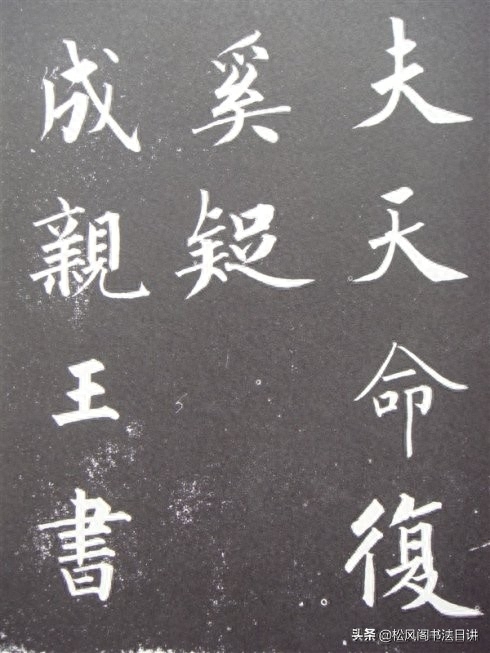 夫天命復
奚疑
成親王書
头条 @松风阁书法日讲